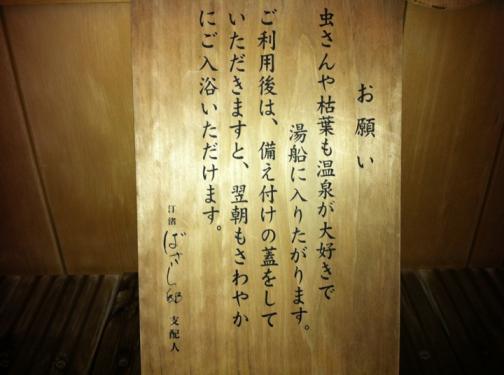 お願い
虫さんや枯葉も温泉が大好きで
湯船に入りたがります。
ご利用後は、備え付けの蓋をして
いただきますと、翌朝もさわやか
にご入浴いただけます。
汀渚 ばさら邸 支配人